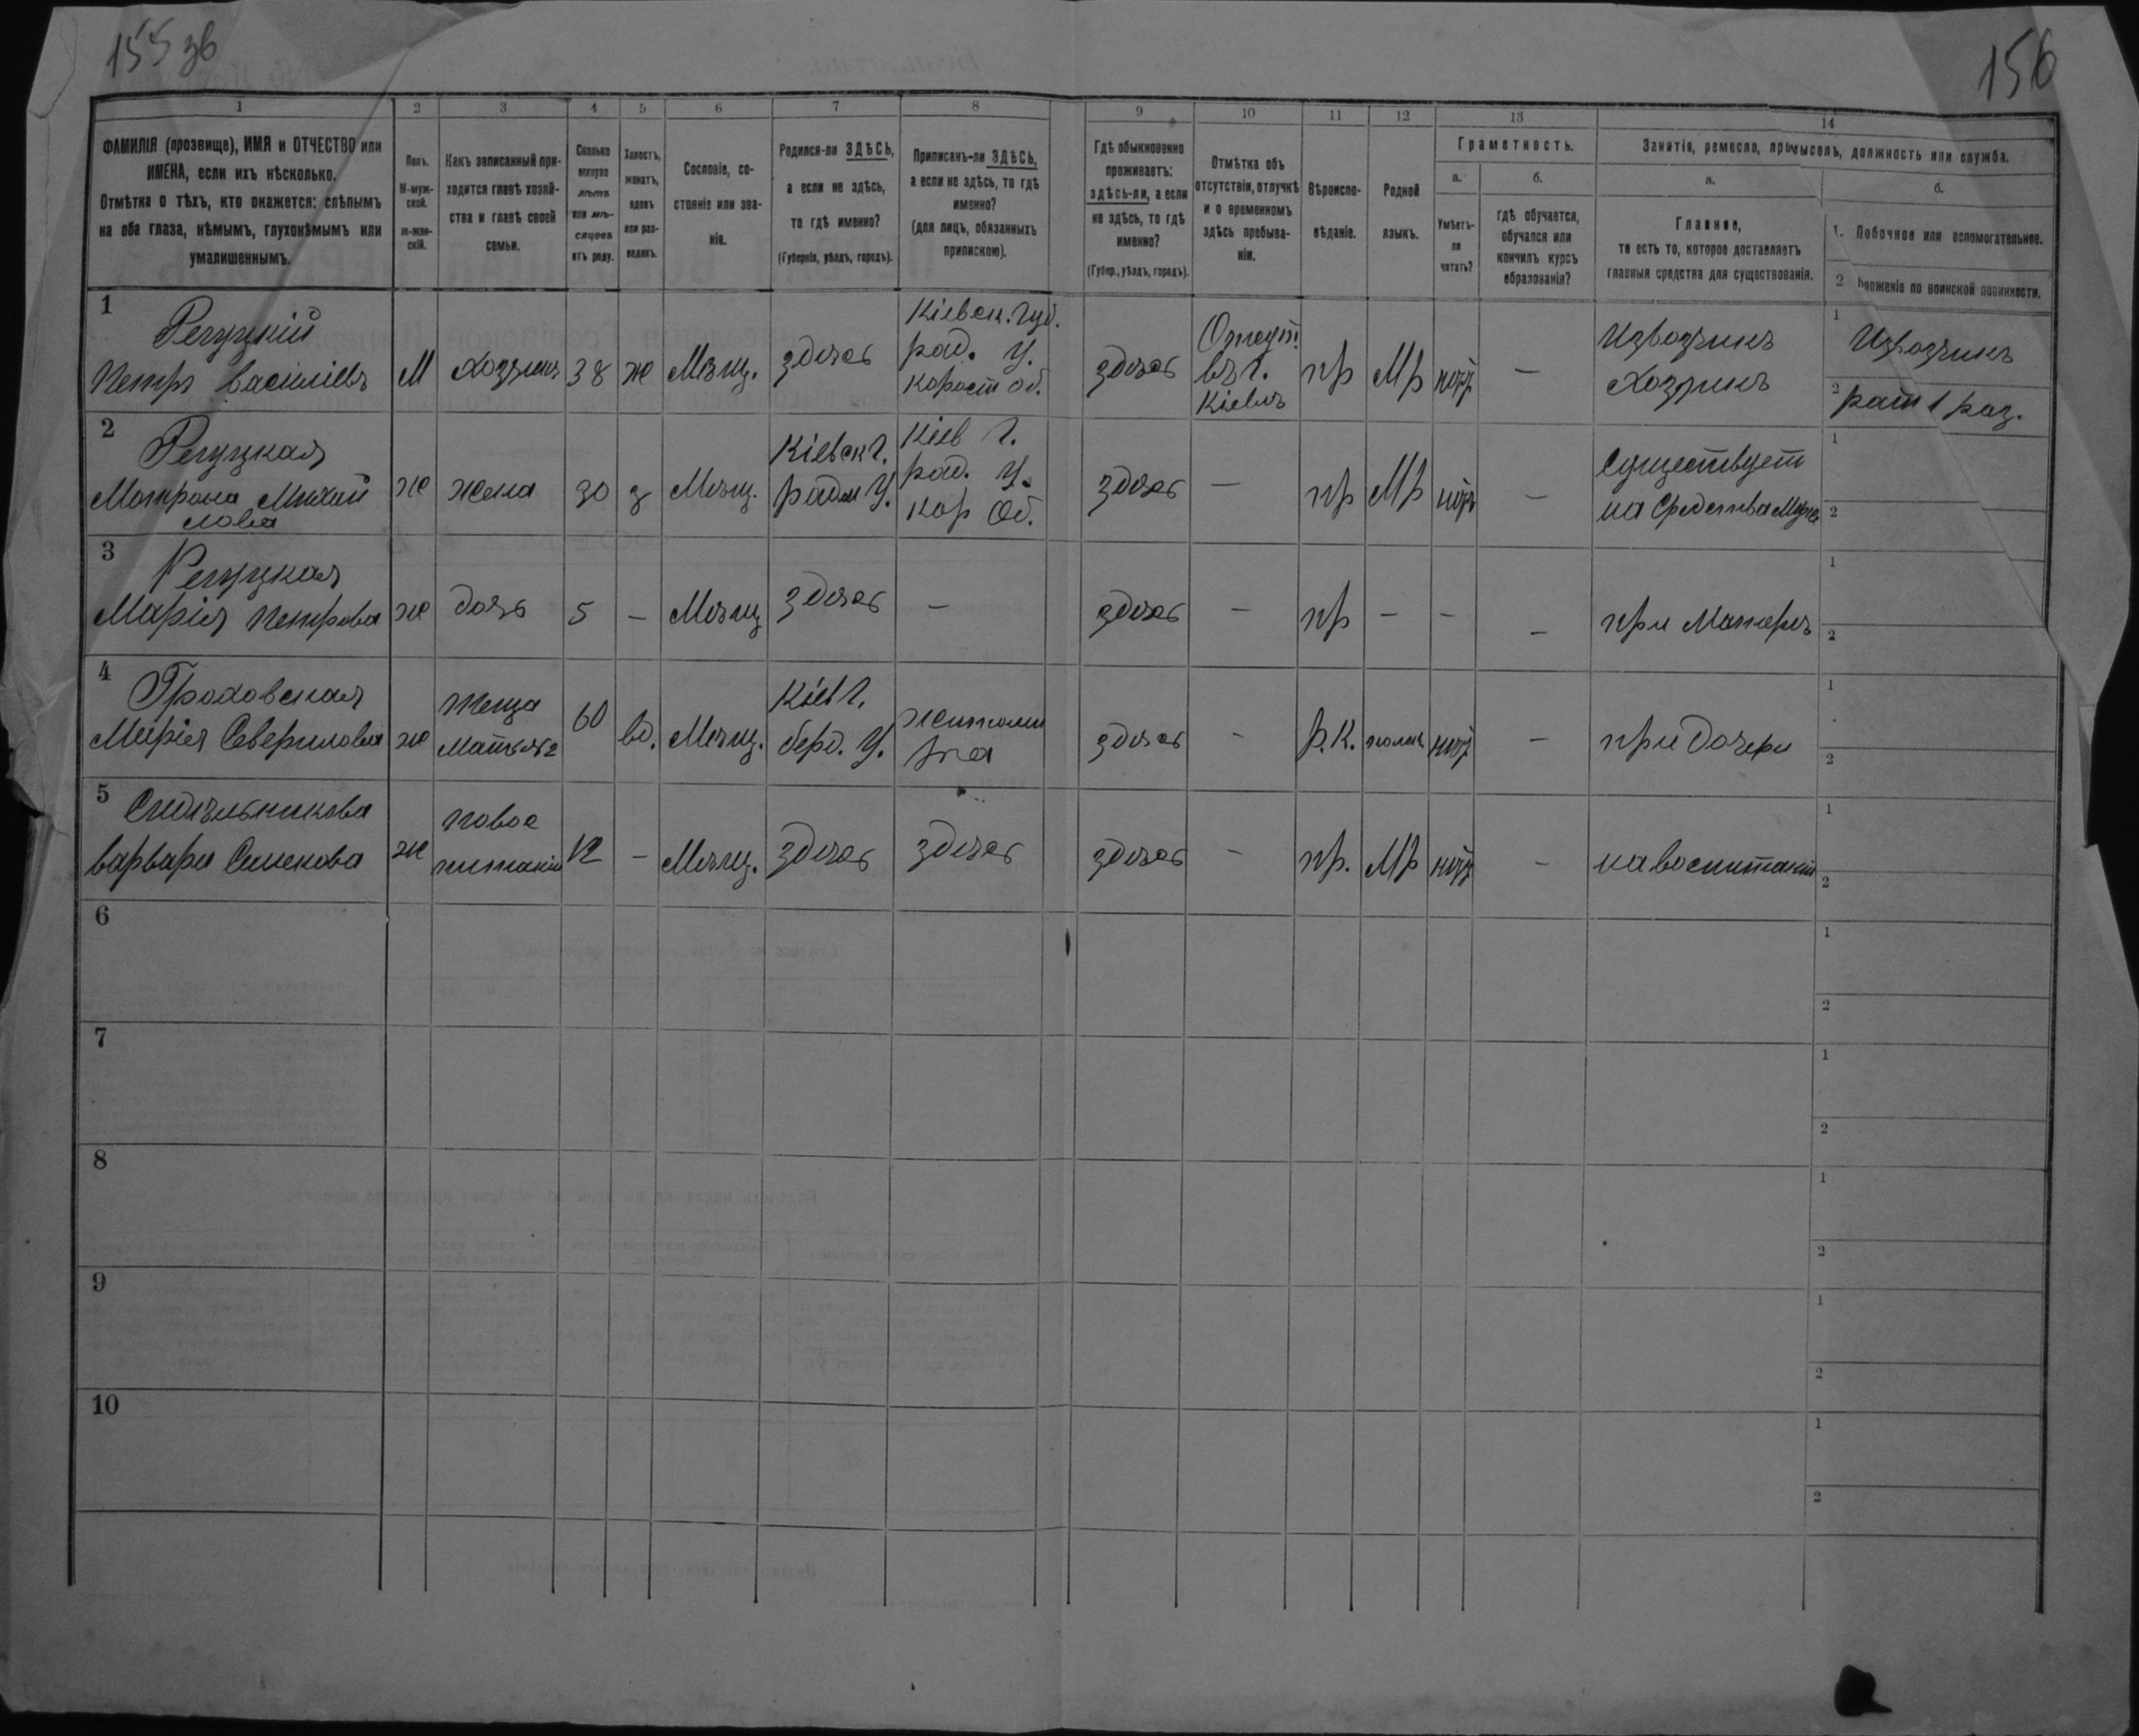 155 зв
156
1 2 3 4 5 6 7 8 9 10 11 12 13 14
ФАМИЛІЯ (прозвище), ИМЯ и ОТЧЕСТВО или
ИМЕНА, если ихъ нѣсколько.
Отмѣтка о тѣхъ, кто окажется: слѣпымъ
на оба глаза, нѣмымъ, глухонѣмымъ или
умалишеннымъ.
Полъ.
М-муж-
ской.
ж-жен-
скій.
Какъ записанный при-
ходится главѣ хозяй-
ства и главѣ своей
семьи.
Сколько
минуло
лѣтъ
или мѣ-
сяцевъ
отъ роду.
Холостъ,
женатъ,
вдовъ
или раз-
веденъ.
Сословіе, со-
стояніе или зва-
ніе.
Родился-ли ЗДѢСЬ,
а если не здѣсь,
то гдѣ именно?
(Губернія, уѣздъ, городъ).
Приписанъ-ли ЗДѢСЬ,
а если не здѣсь, то гдѣ
именно?
(для лицъ, обязанныхъ
припискою).
Гдѣ обыкновенно
проживаетъ:
здѣсь-ли, а если
не здѣсь, то гдѣ
именно?
(Губер., уѣздъ, городъ).
Отмѣтка объ
отсутствіи, отлучкѣ
и о временномъ
здѣсь пребыва-
ніи.
Вѣроиспо-
вѣданіе.
Родной
языкъ.
Грамотность.
а.
Умѣетъ-
ли
читать?
б.
гдѣ обучается,
обучался или
кончилъ курсъ
образованія?
Занятія, ремесло, промыселъ, должность или служба.
а.
Главное,
то есть то, которое доставляетъ
главныя средства для существованія.
б.
1. Побочное или вспомогательное.
2 положеніе по воинской повинности.
1
Петръ Василіевъ
М
хозяинъ
38
ж
Мѣщ.
здесь
Кіевск. Губ.
рад. У.
корост об.
здесь
въ г.
Кіевъ
пр
МР
—
Извозчикъ
Хозяинъ
1
Извозчикъ
2
рат 1 раз.
2
Матрона Михай
лова
ж
жена
30
з
Мѣщ.
Кіевск г.
радм У.
Кіев г.
рад. У.
кор Об.
здесь
—
пр
МР
—
Существует
на Средства Мужа
1
2
3
Марія Петрова
ж
дочь
5
—
Мѣщ
здесь
—
здесь
—
пр
—
—
—
при Матери
1
2
4
Гроховская
Марія Северинова
ж
60
вд.
Мѣщ.
Кіев г.
берд. У.
Житоми
ра
здесь
-
Р. К.
польск
—
при дочери
1
2
5
Варвара Семенова
ж
12
—
Мѣщ.
здесь
здесь
здесь
-
пр.
МР
—
на воспитаніи
1
2
6
1
2
7
1
2
8
1
2
9
1
2
10
1
2